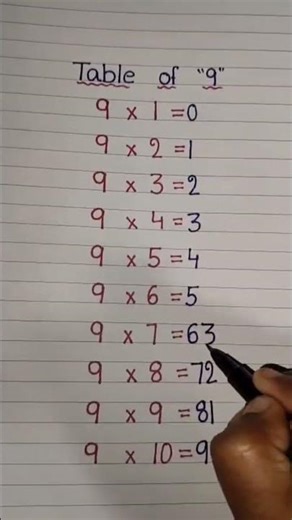 Table of "9"
9 x 1 = 0
9 x 2 = 1
9 x 3 = 2
9 x 4 = 3
9 x 5 = 4
9 x 6 = 5
9 x 7 = 63
9 x 8 = 72
9 x 9 = 81
9 x 10 = 9